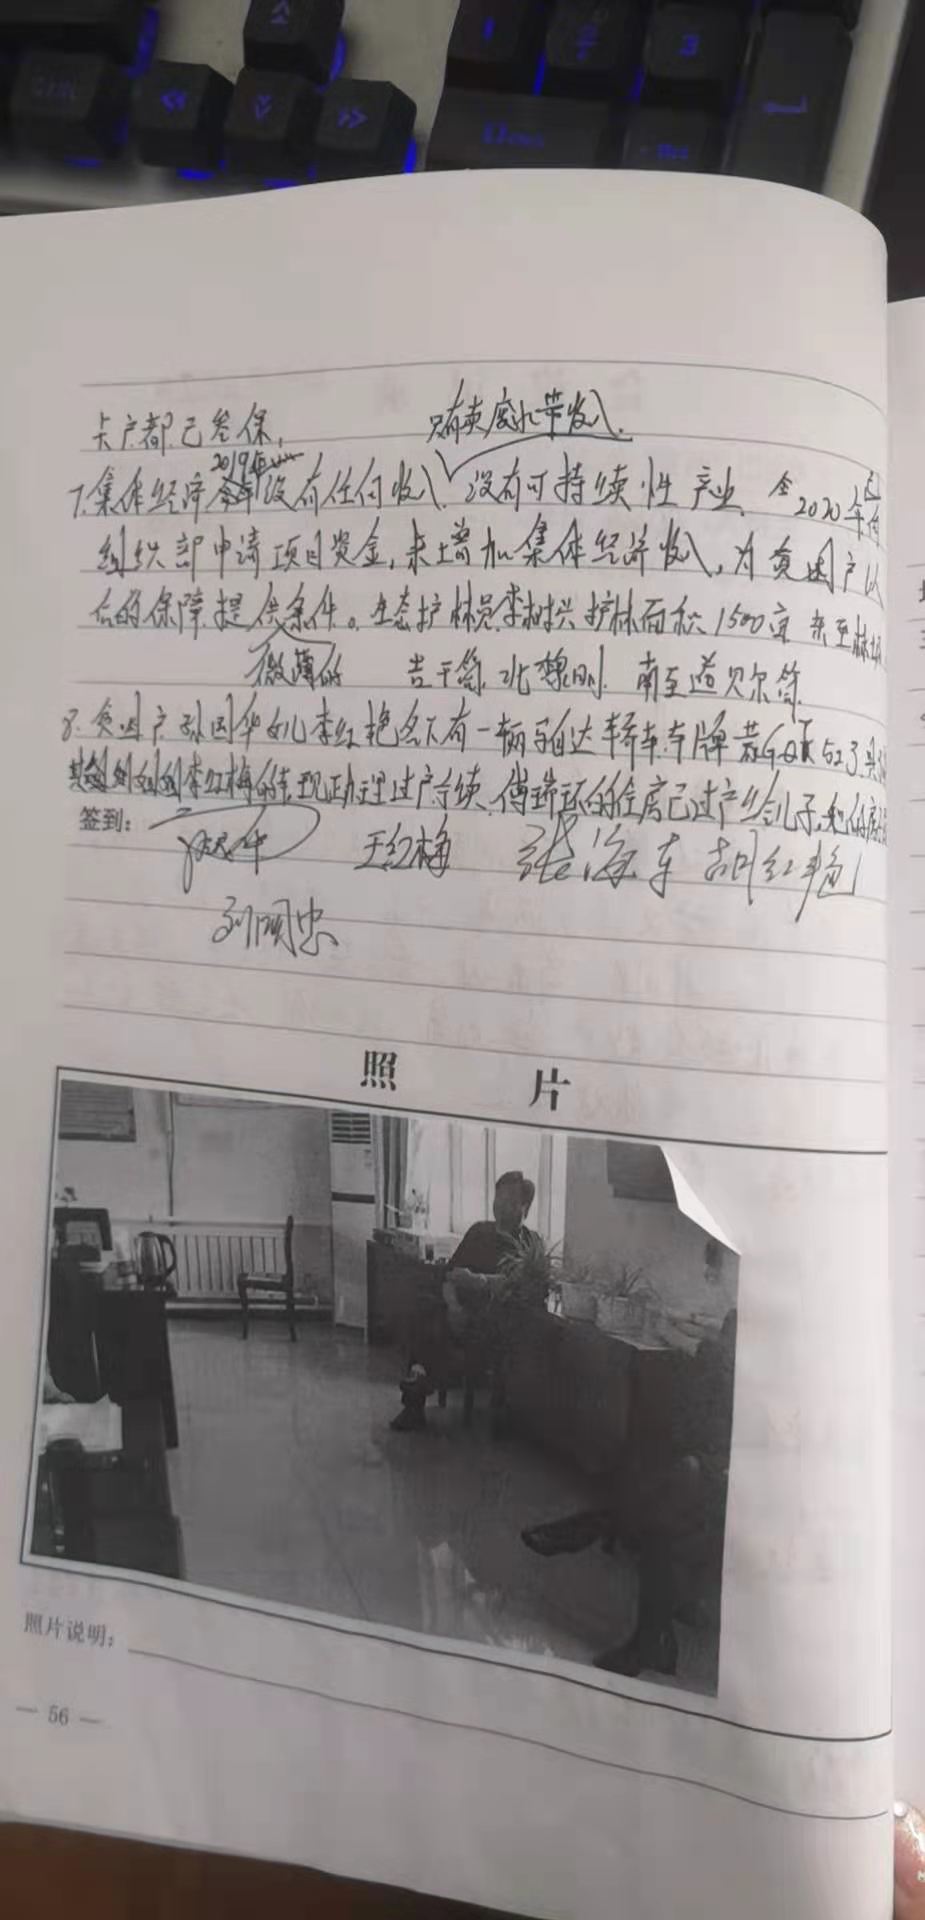 卡户都已参保,
只有卖废水带收入.
2019年
7.集体经济今年没有任何收入没有可持续性产业.
2020年向
组织部申请项目资金,来增加集体经济收入,为贫困户以
后的保障提供条件。生态护林员李树兴护林面积1500亩 东至林场
微薄的
南至道贝尔筒
8.贫困户孙国华女儿李红艳名下有一辆马自达轿车车牌 523
李红梅 现正办理过户手续.傅瑞环的住房已过户给儿子,
签到:
王红梅 张海车 胡红艳
刘国忠
照 片
照片说明:
— 56 —